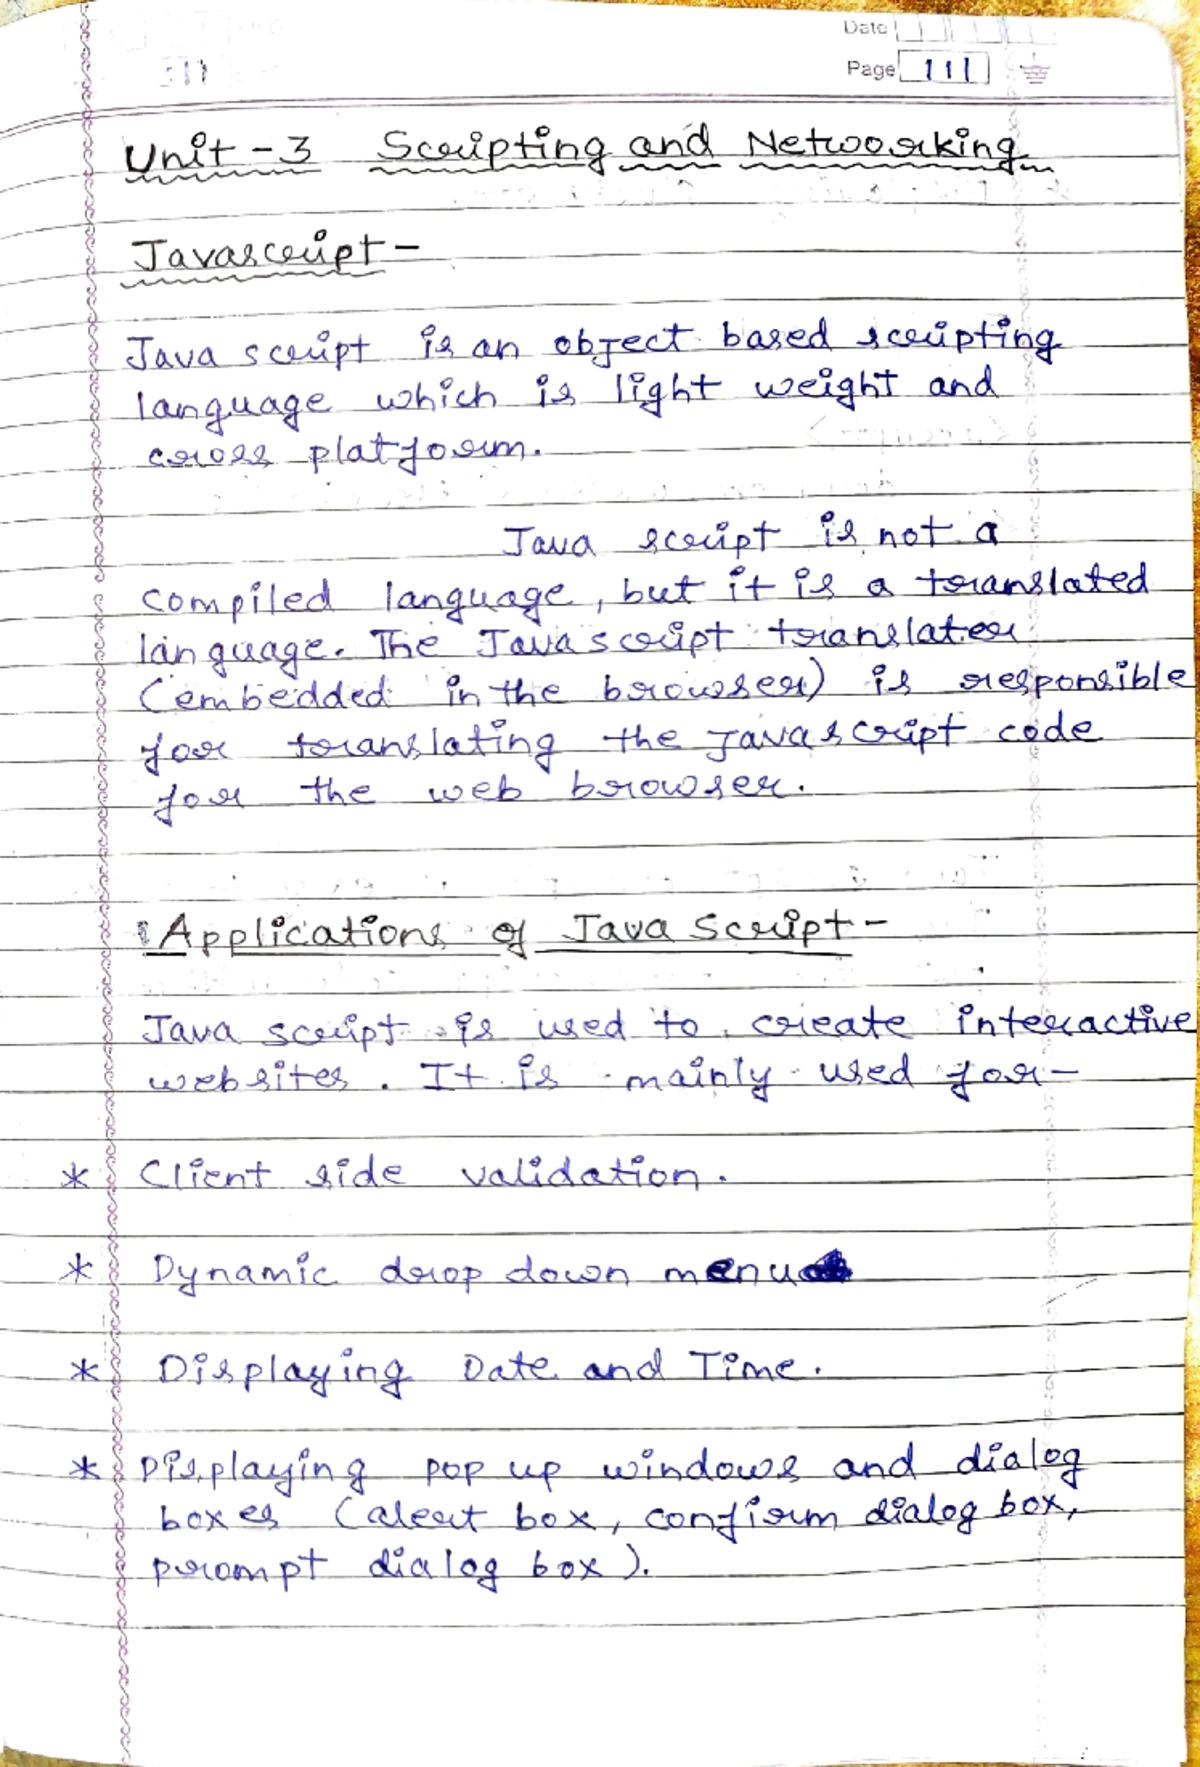 Date
Page 111
Unit - 3 Scripting and Networking
Javascript -
Java script is an object based scripting
language which is light weight and
cross platform.
Java script is not a
compiled language, but it is a translated
language. The Javascript translator
(embedded in the browser) is responsible
for translating the javascript code
for the web browser.
Applications of Java Script -
Java script is used to create interactive
websites. It is mainly used for -
* Client side validation.
* Dynamic drop down menu
* Displaying Date and Time.
* Displaying pop up windows and dialog
boxes (alert box, confirm dialog box,
prompt dialog box).